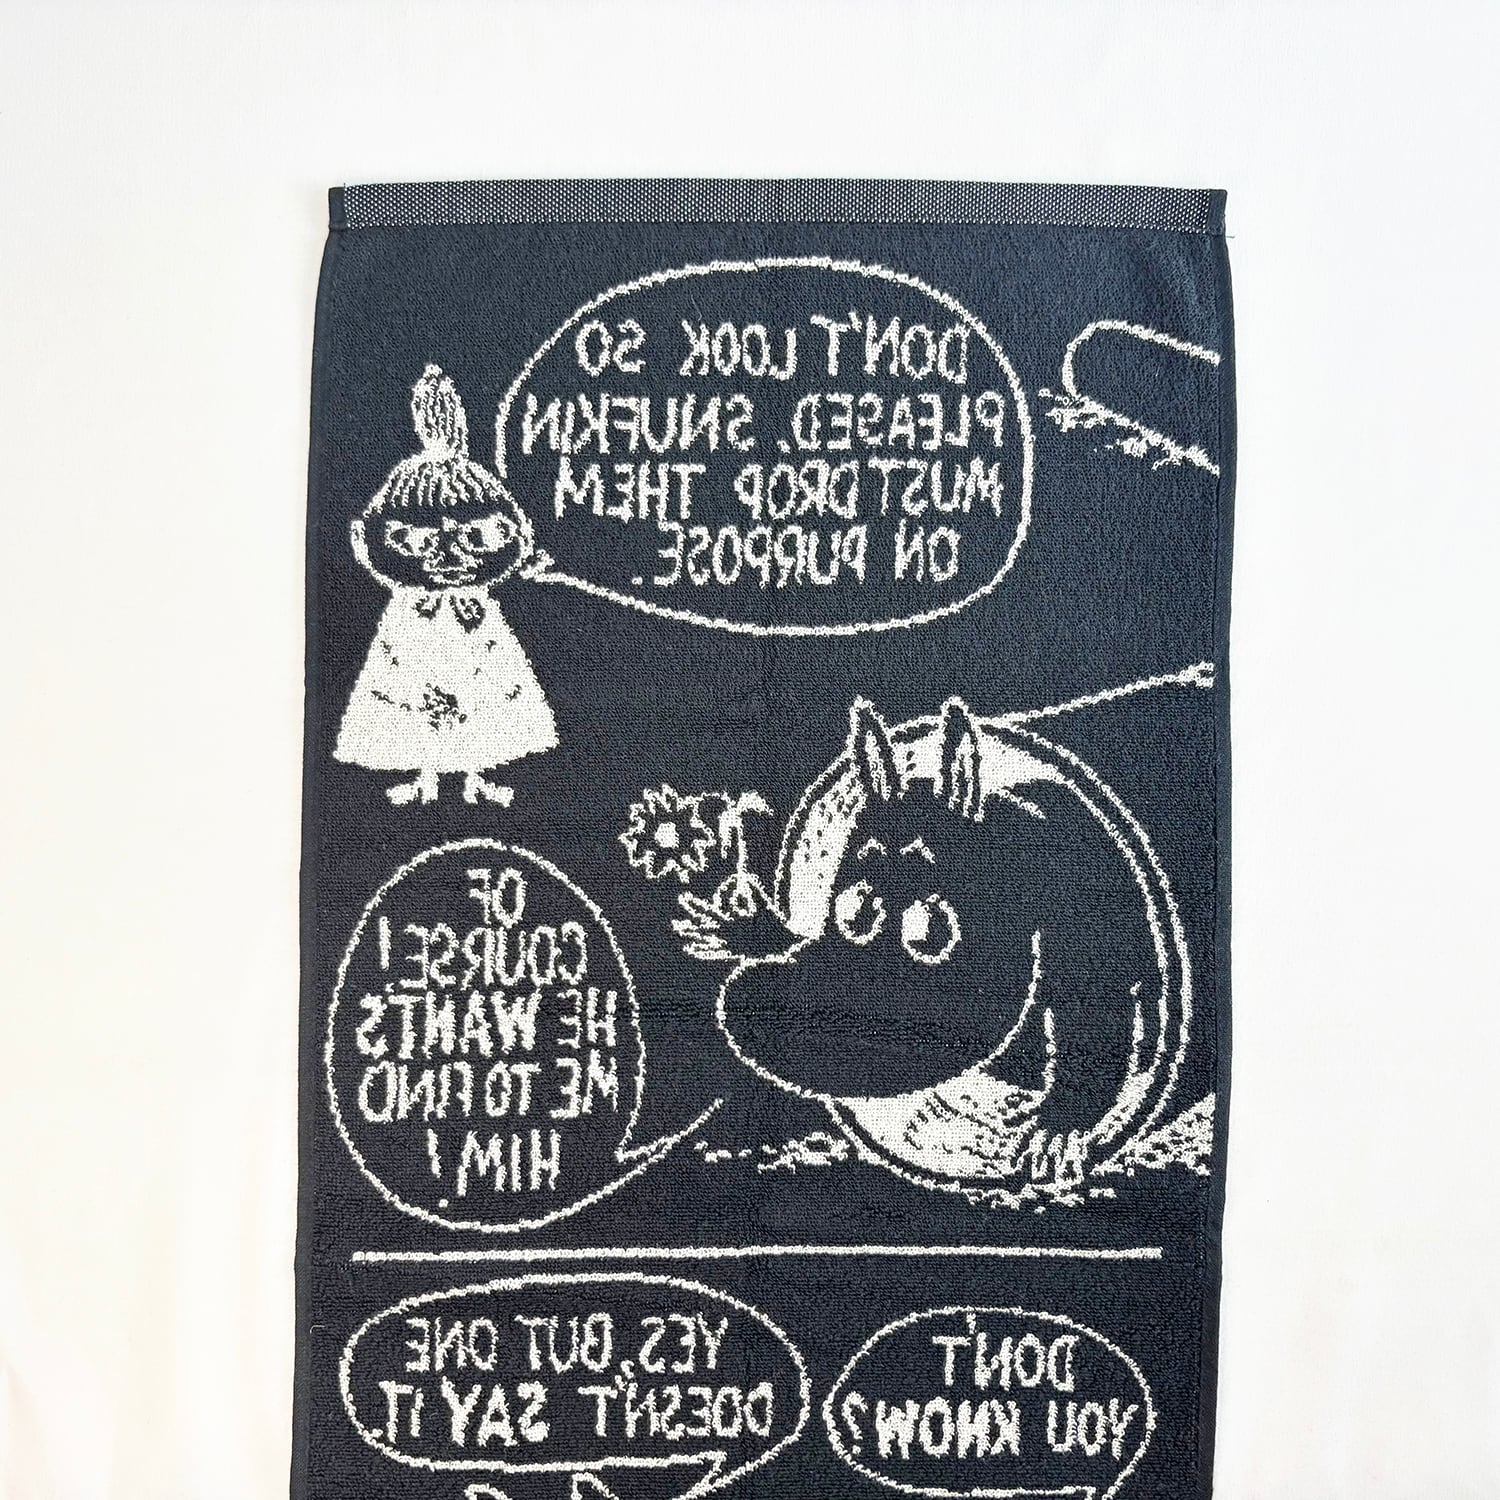 DON'T LOOK SO
PLEASED, SNUFKIN
MUST DROP THEM
ON PURPOSE.
OF
COURSE!
HE WANTS
ME TO FIND
HIM!
DON'T
YOU KNOW?
YES, BUT ONE
DOESN'T SAY IT.